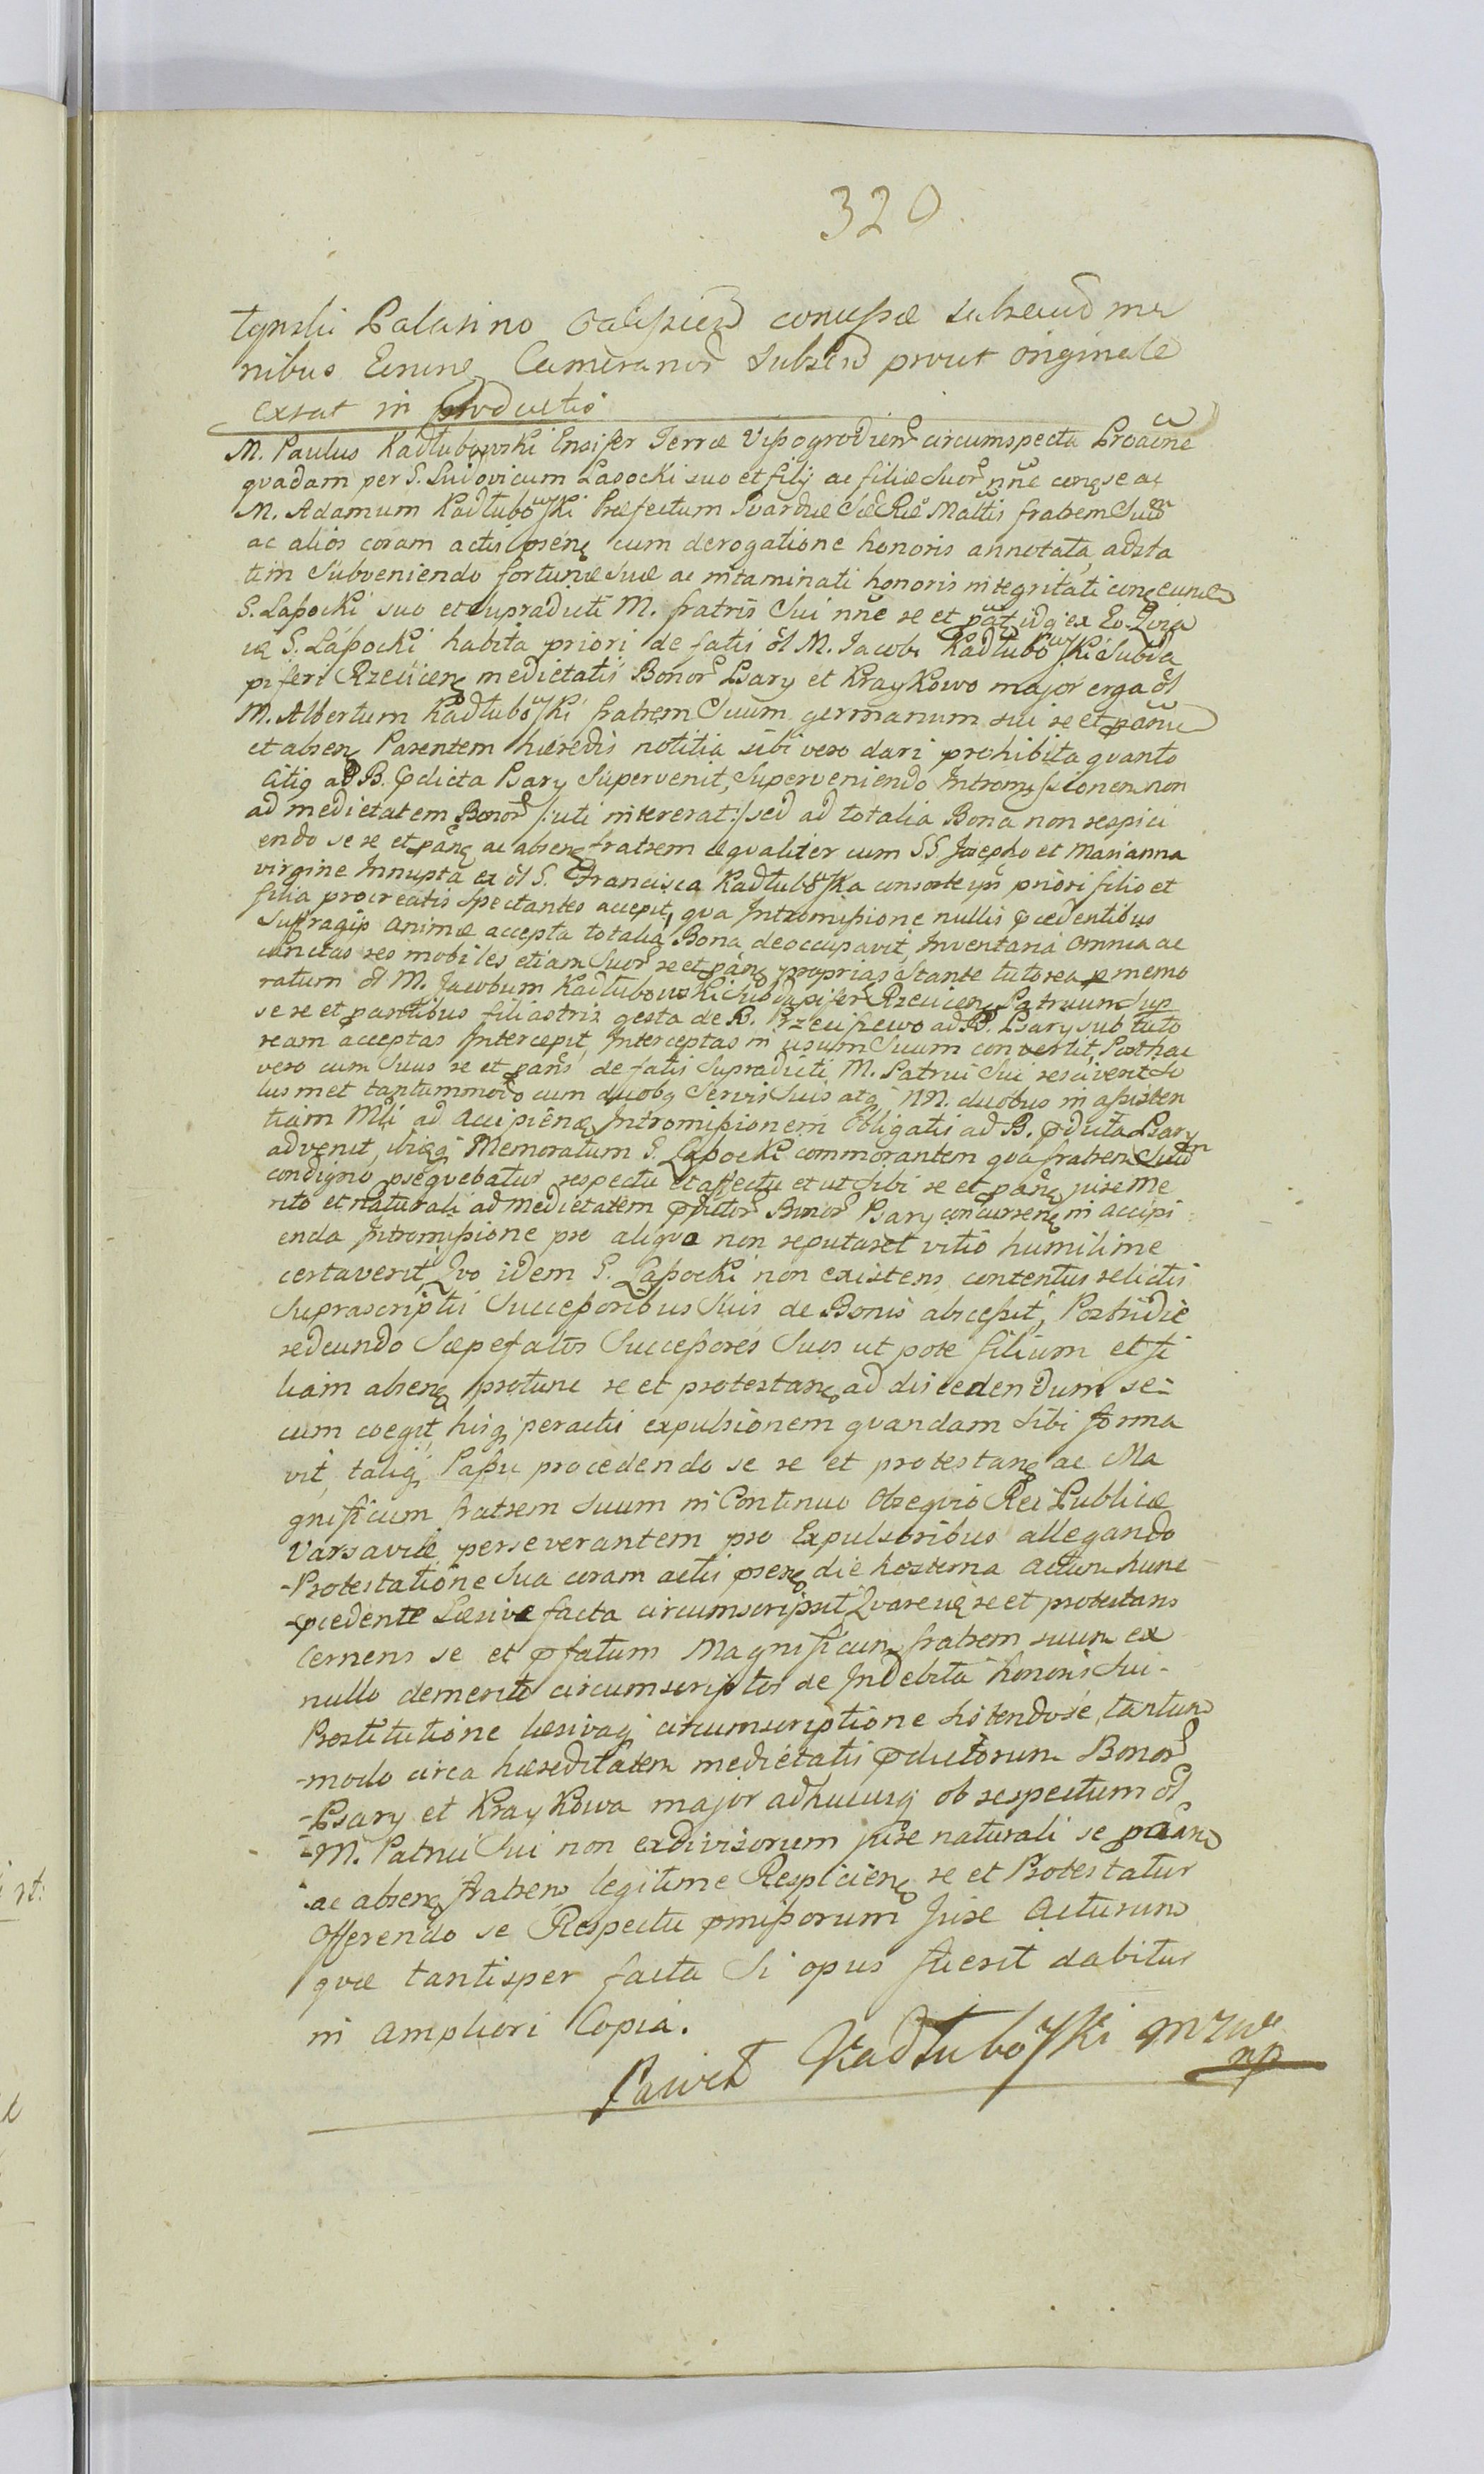 320.
tynski Palatino Calissien conussæ subseud ma
nibus Camerariор subsen prout originale
extat in productio
M. Paulus Kadłubowski Ensifer Terræ Vissogrodien circumspecta Proaõne
quadam per G. Ludovicum Lasocki suo et filij ac filiæ suor nñe con se ac
M. Adamum Kadłubowski Præfectum Gvardiæ Sæ Ræ Mattis fratrem Suum
ac alios coram actis psen cum derogatione honoris annotata, adsta
tim Subveniendo fortunæ suæ ac intaminati honoris integritati con eund
G. Lassocki suo et supradicti M. fratris Sui nñe se et pãt idq ex Eo. Quia
G. Lassocki habita priori de fatis ol M. Jacobi Kadłubowski Subda
piferi Rzeczicen medietatis Bonor Psary et Kraykowo major erga ol
M. Albertum Kadłubowski fratrem Suum germanum sui se et pãnu
et absen Parentem hæredis notitia sibi vero dari prohibita quanto
Citiq ad B. pdicta Psary Supervenit, Superveniendo Intromissionem non
ad medietatem Bonor /:uti intererat:/ sed ad totalia Bona non respici
endo se se et pãn ac absen fratrem æqualiter cum SS Josepho et Marianna
virgine Innupta ex ol G. Francisca Kadłubowska consorte ipš priori filio et
filia procreatis Spectantes accepit, qua Intromissione nullis pcedentibus
Suffragijs animæ accepta totalia Bona deoccupavit, Inventaria omnia ac
cunctas res mobiles etiam Suor se et pãn proprias Stante tutorea p memo
ratum ol M. Jacobum Kadłubowski Subdapifer Rzeczicen Patruum Sup
se se et partibus filiastris gesta de B. Rzeciszewo ad B. Psary sub tuto
ream acceptas Intercepit, Interceptas in usum Suum convertit, Posthac
vero cum Suus se et pãns de fatis Supradicti M. Patrui Sui resciverit So
lus met tantummodo cum duobq Servis Suis atq NN. duobus in assisten
tiam Mli ad accipien Intromissionem Obligatis ad B. pdicta Psary
advenit, ibiq Memoratum G. Lassocki commorantem qua fratrem Suum
condigno psequebatur respectu et affectu et ut Sibi se et pãn jure me
rito et naturali ad medietatem pdictor Bonor Psary concurren in accipi
enda Intromissione pro aliqua non reputaret vitio humilime
certaverit, Quo idem G. Lassocki non existens contentus relictis
Suprascriptis Successoribus Suis de Bonis abscessit, Postridie
redeundo Sæpefatos Successores Suos ut pote filium et fi
liam absen protunc se et protestan ad discedendum se=
cum coegit, hisq peractis expulsionem quandam Sibi forma
vit, taliq Passu procedendo se se et protestan ac Ma
gnificum fratrem Suum in Continuo Obsequio Rei Publicæ
Varsaviæ perseverantem pro Expulsoribus allegando
-Protestatione Sua coram actis psen die hesterna actum hunc
-pcedente Læsive facta circumscripsit, Quare se et protestans
Cernens se et pfatum Magnificum fratrem suum ex
nullo demerito circumscriptos de Indebita honoris Sui-
Prostitutione læsivaq circumscriptione Sistendo se, tantum
-modo circa hæreditatem medietatis pdictorum Bonor
-Psary et Kraykowa major adhucusq ob respectum ol
-M. Patrui Sui non exdivisorum jure naturali se paan
-ac absen fratrem legitime Respicien se et Protestatur
Offerendo se Respectu pmissorum Jure Acturum
quæ tantisper facta Si opus fuerit dabitur
in ampliori Copia.
Paweł Kadłubowski MZW
mp